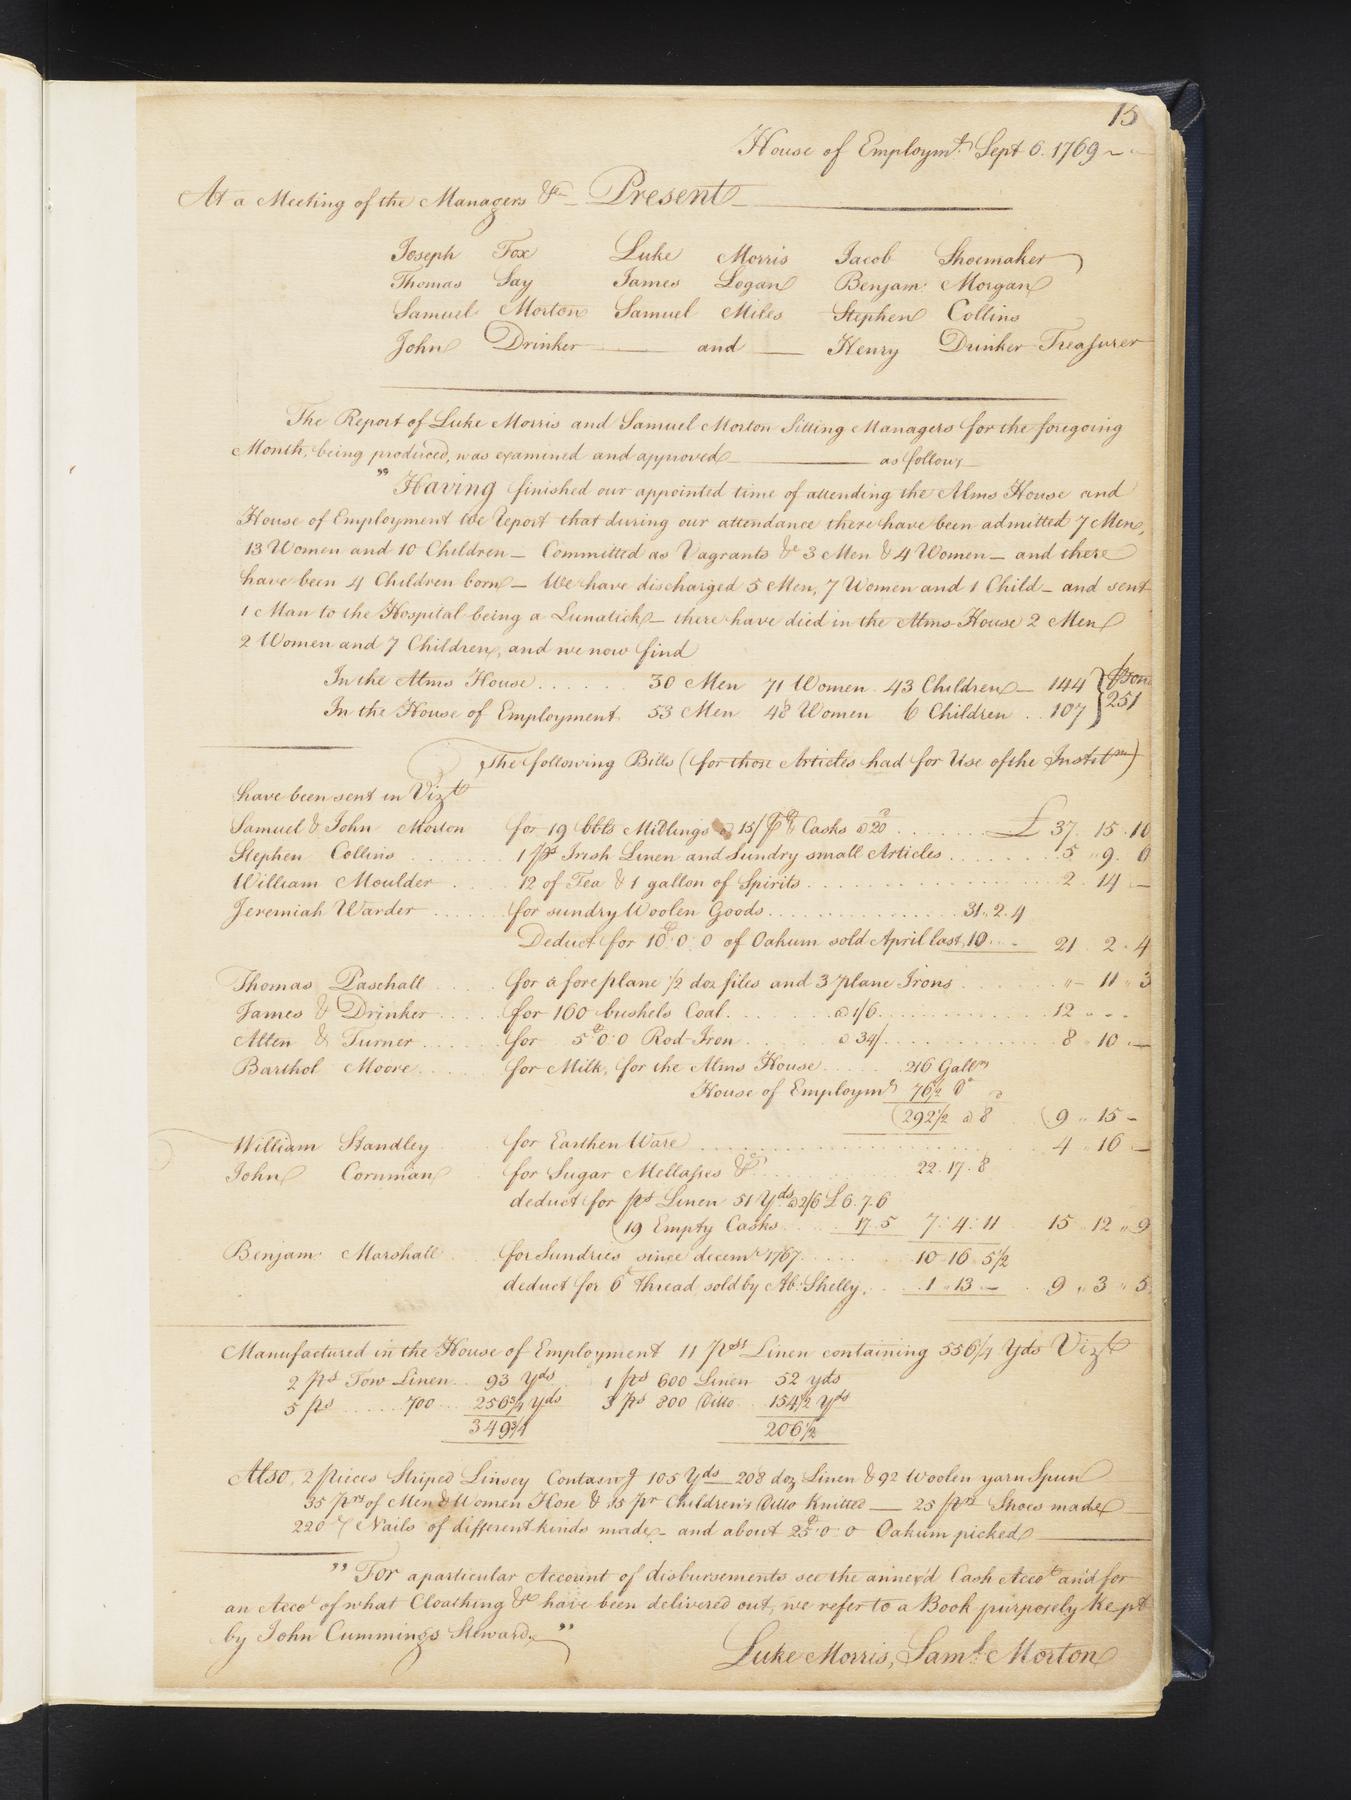 15
House of Employmt. Sept 6. 1769
At a Meeting of the Managers &c Present
Joseph Fox Luke Morris Jacob Shoemaker
Thomas Say James Logan Benjam: Morgan
Samuel Morton Samuel Miles Stephen Collins
John Drinker and Henry Drinker Treasurer
The Report of Luke Morris and Samuel Morton Sitting Managers for the foregoing
Month, being produced, was examined and approved as follows
" Having finished our appointed time of attending the Alms House and
House of Employment We Report that during our attendance there have been admitted 7 Men,
13 Women and 10 Children – Committed as Vagrants &c 3 Men & 4 Women – and there
have been 4 Children born – We have discharged 5 Men, 7 Women and 1 Child – and sent
1 Man to the Hospital being a Lunatick – there have died in the Alms-House 2 Men
2 Women and 7 Children, and we now find
In the Alms House ...... 30 Men 71 Women 43 Children – 144
In the House of Employment 53 Men 48 Women 6 Children .. 107 } 251
The following Bills (for those Articles had for Use of the Institn)
have been sent in Vizt
Samuel & John Morton for 19 bbls Midlings @ 15/ Casks @ 20 ...... £ 37. 15. 10
Stephen Collins ...... 1 ps Irish Linen and Sundry small Articles ...... 5 " 9. 6
William Moulder .... 12 of Tea & 1 gallon of Spirits ...... 2. 14 –
Jeremiah Warder ..... for sundry Woolen Goods ...... 31. 2. 4
Deduct for 10:0:0 of Oakum sold April last, 10 .. – 21. 2. 4
Thomas Paschall .... for a fore plane 1/2 doz files and 3 plane Irons ...... " – 11 " 3
James & Drinker .... for 160 bushels Coal ...... @ 1/6 ...... 12 " – –
Allen & Turner ...... for 5:0:0 Rod-Iron ...... @ 34/ ...... 8 " 10 –
Barthol Moore ..... for Milk, for the Alms House ..... 216 Galln
House of Employmt 76 1/2 Do
292 1/2 @ 8 9 " 15 –
William Standley for Earthen Ware ...... 4 " 16 –
John Cornman for Sugar Mellasses &c ...... 22. 17. 8
deduct for ps Linen 51 Yds @ 2/6 £ 6. 7. 6
19 Empty Casks .... 17. 5 7: 4: 11 15 " 12 " 9
Benjam: Marshall for Sundries since decemr 1767 ...... 10 16 5 1/2
deduct for 6 thread sold by Ab: Shelly, .. 1 " 13 – 9 " 3 " 5
Manufactured in the House of Employment 11 pss Linen containing 556 1/4 Yds Vizt
2 ps Tow Linen .. 93 Yds 1 ps 600 Linen 52 yds
5 ps ..... 700 .... 256 3/4 yds 3 ps 800 Ditto 154 1/2 Yds
349 3/4 206 1/2
Also, 2 pieces Striped Linsey Containg 105 Yds – 208 doz Linen & 92 Woolen yarn Spun
35 prs of Men & Women Hose & 15 pr Children's Ditto Knitted – 25 prs Shoes made
Nails of different kinds made – and about 25:0:0 Oakum picked
" For a particular Account of disbursements see the annex'd Cash Accot and for
an Accot of what Cloathing &c have been delivered out, we refer to a Book purposely Kept
by John Cummings Steward. "
Luke Morris, Saml. Morton